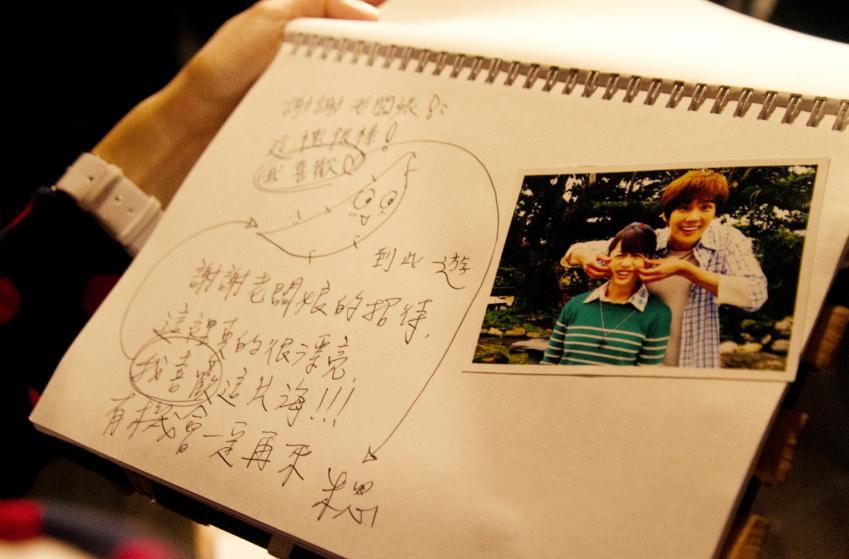 謝謝老闆娘!
這裡很棒!
我喜歡
到此遊
謝謝老闆娘的招待,
這裡真的很漂亮
我喜歡這片海!!!
有機會一定再來